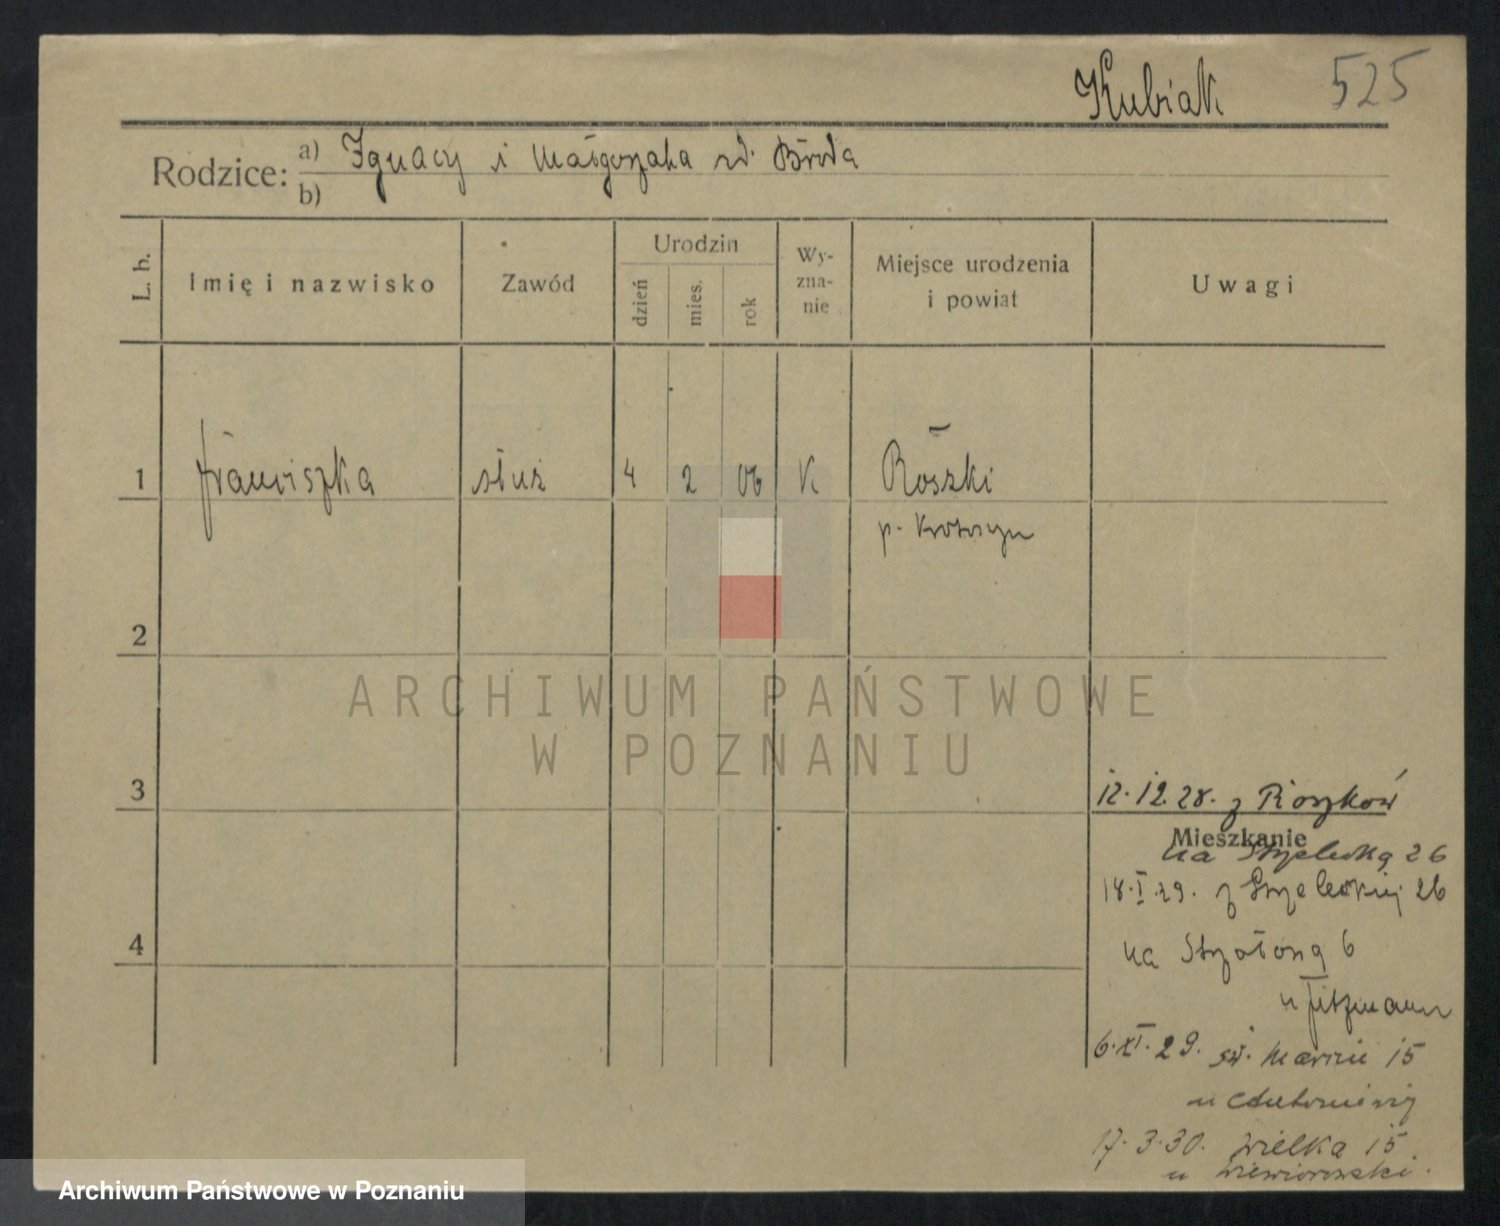 Kubiak 525
Rodzice: a) Ignacy i Małgorzata zd. Broda
b)
L. b. Imię i nazwisko Zawód Urodzin dzień mies. rok Wy-zna-nie Miejsce urodzenia i powiat Uwagi
1 Franciszka służ 4 2 06 K Roszki
p. Krotoszyn
2
ARCHIWUM PAŃSTWOWE
W POZNANIU
3
12.12.28. z Roszków
Mieszkanie
na Strzelecką 26
18.I.29. z Strzeleckiej 26
4
na Strzałową 6
u
6.XI.29. św. Marcin 15
u
17.3.30. Wielka 15
u Wiewiorowski.
Archiwum Państwowe w Poznaniu